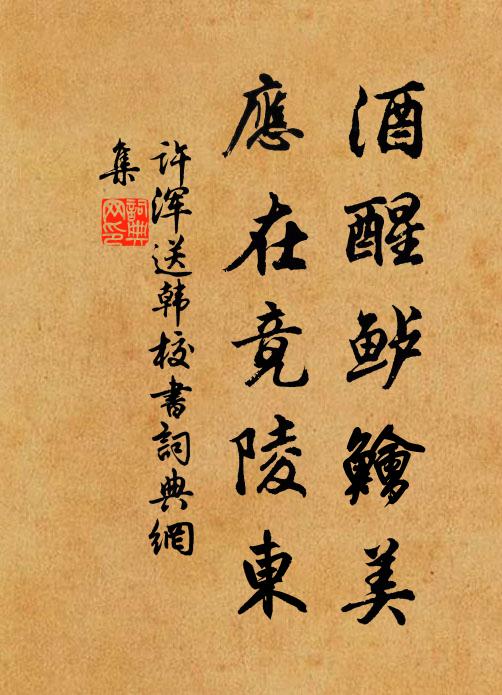 酒醒鲈鱠美
應在竟陵東
许浑送韩校書詞典網
集
詞典
网印